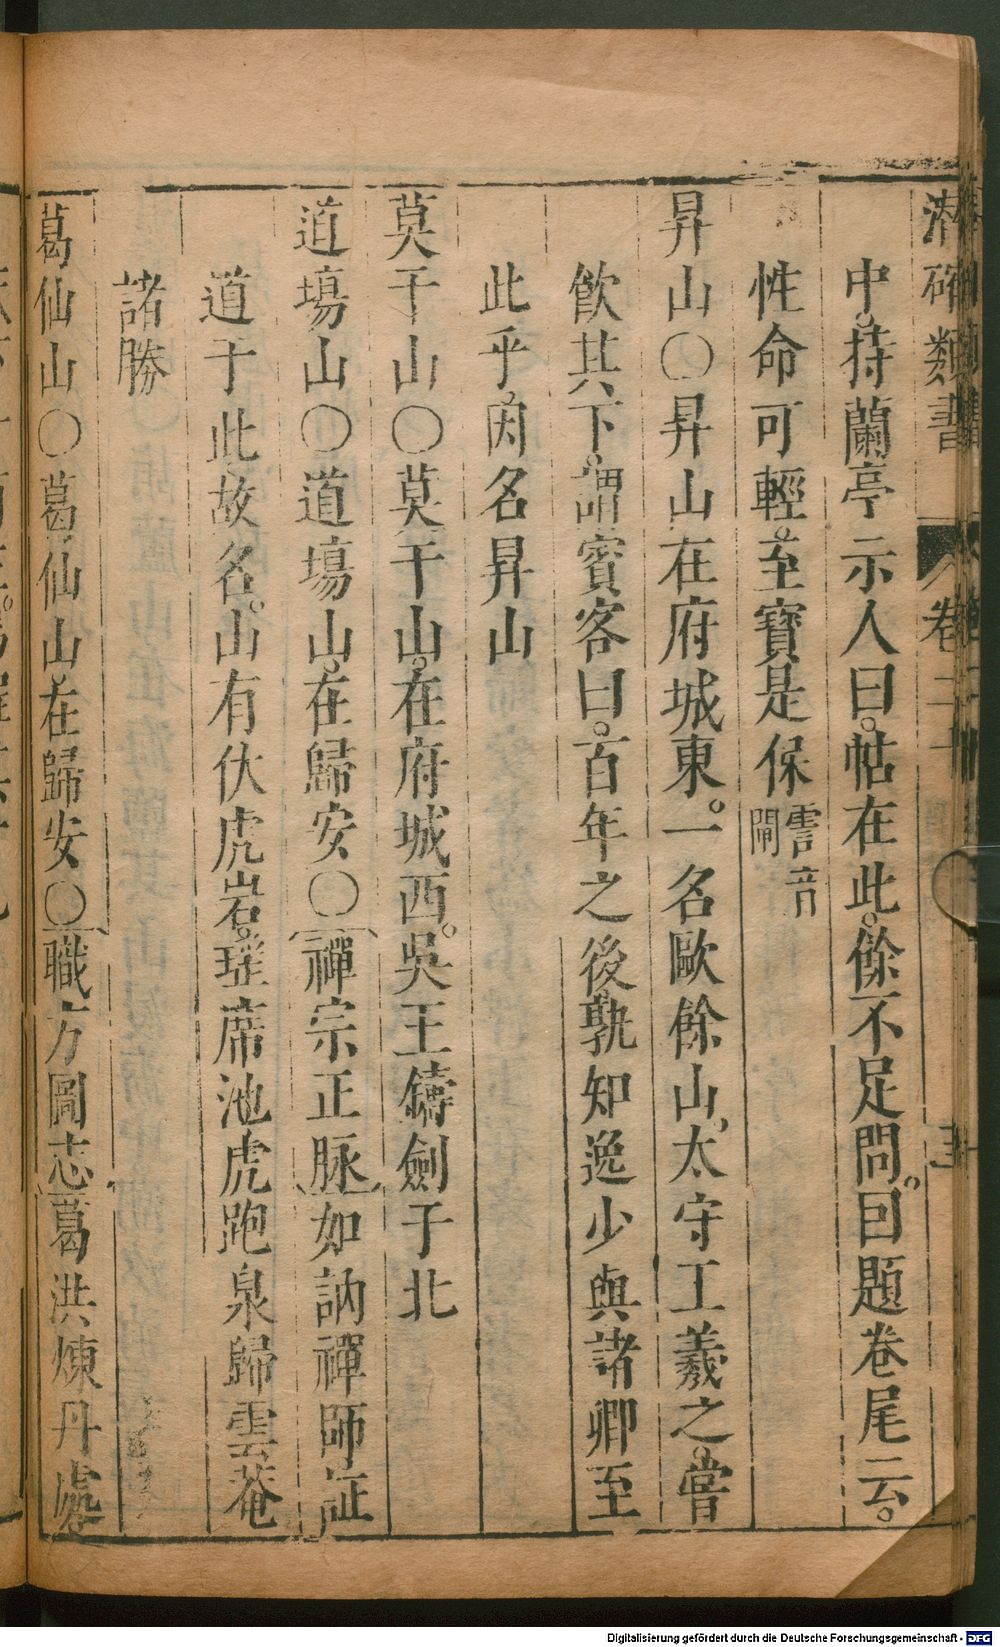 潛確類書 卷二十
中。持蘭亭示人曰。帖在此。餘不足問。因題卷尾云。
性命可輕。至寶是保 霅音閘
昇山〇昇山在府城東。一名歐餘山。太守王羲之。嘗
飲其下。謂賓客曰。百年之後。孰知逸少與諸卿至
此乎。因名昇山
莫干山〇莫干山。在府城西。吳王鑄劍于北
道場山〇道場山。在歸安〇禪宗正脉如訥禪師証
道于此故名。山有伏虎岩。瑤席池虎跑泉歸雲菴
諸勝
葛仙山〇葛仙山。在歸安〇職方圖志葛洪煉丹處
Digitalisierung gefördert durch die Deutsche Forschungsgemeinschaft - DFG